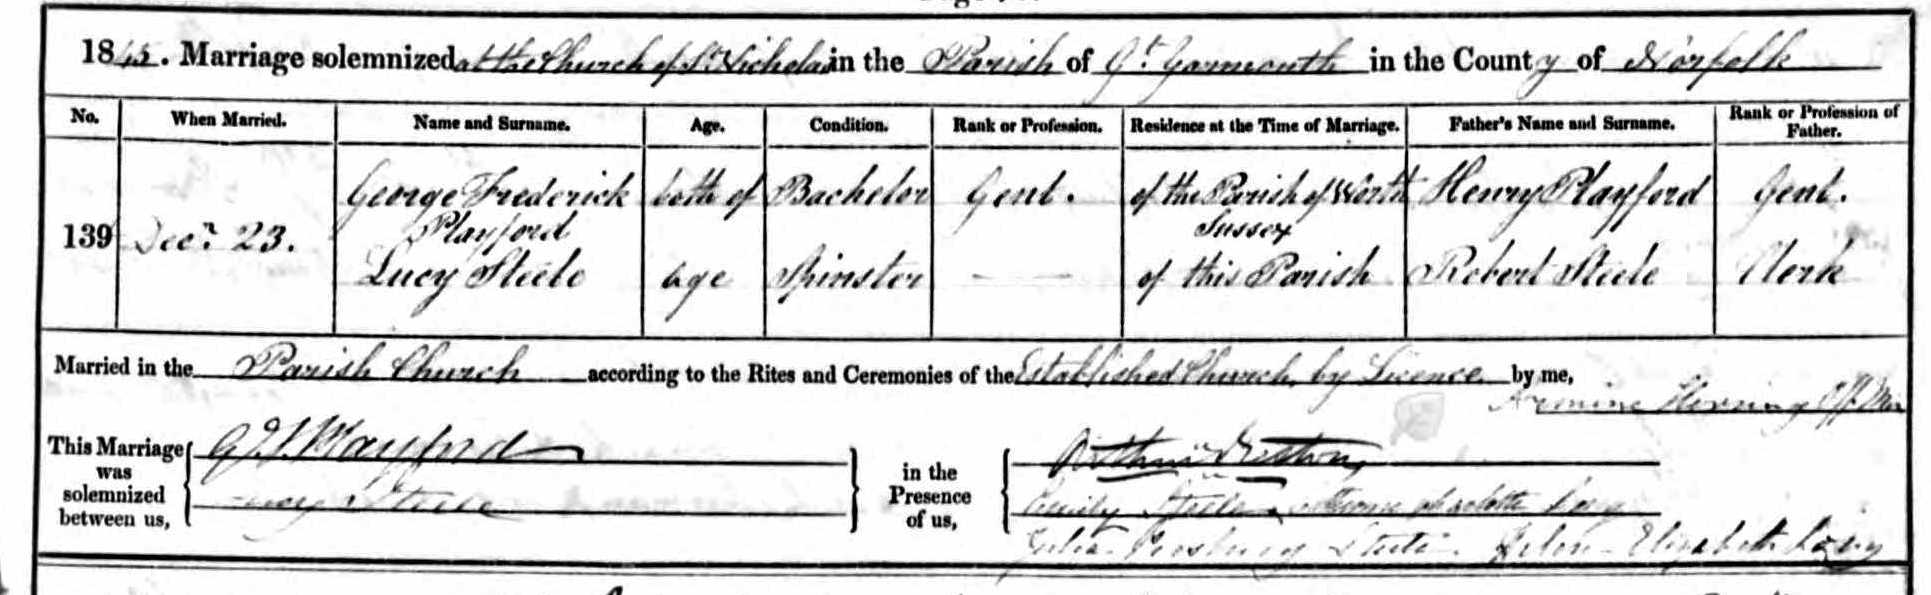 1845. Marriage solemnized at the Church of St. Nicholas in the Parish of Gt. Yarmouth in the County of Norfolk
No. When Married. Name and Surname. Age. Condition. Rank or Profession. Residence at the Time of Marriage. Father's Name and Surname. Rank or Profession of Father.
139 Decr. 23. George Frederick Playford both of Bachelor Gent. of the Parish of Worth Sussex Henry Playford Gent.
Lucy Steele age Spinster of this Parish Robert Steele Clerk
Married in the Parish Church according to the Rites and Ceremonies of the Established Church, by Licence by me,
Herring Off. Min
This Marriage was solemnized between us, G F Playford in the Presence of us, Arthur
Lucy Steele Steele Charlotte
Julia Steele. Helen Elizabeth